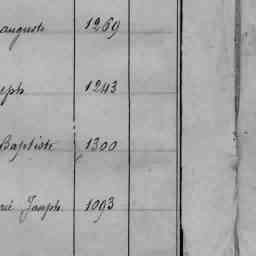 auguste 1269
eph 1243
Baptiste 1300
rié Joseph. 1093